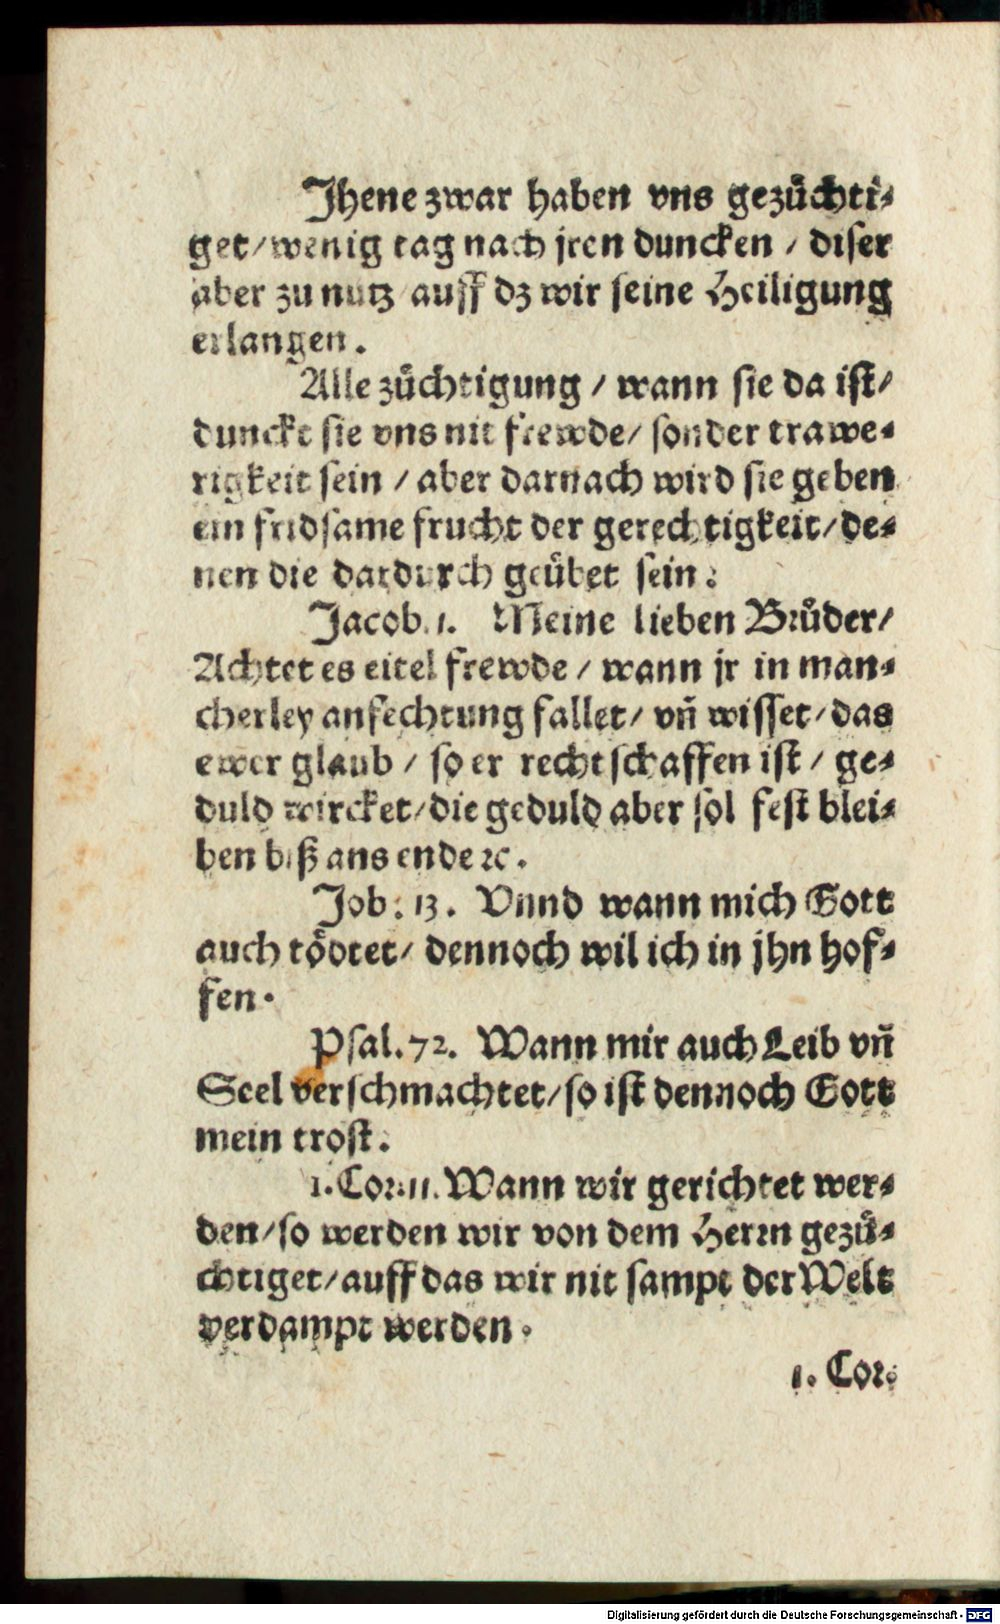 Jhene zwar haben vns gezuͤchti⸗
get/ wenig tag nach jren duncken / diser
aber zu nutz auff dz wir seine Heiligung
erlangen.
Alle zuͤchtigung / wann sie da ist/
dunckt sie vns nit frewde/ sonder trawe⸗
rigkeit sein / aber darnach wird sie geben
ein fridsame frucht der gerechtigkeit/ de⸗
nen die dardurch geuͤbet sein.
Jacob. 1. Meine lieben Bruͤder/
Achtet es eitel frewde / wann jr in man⸗
cherley anfechtung fallet/ vñ wisset/ das
ewer glaub / so er rechtschaffen ist / ge⸗
duld wircket/ die geduld aber sol fest blei⸗
ben biß ans ende ꝛc.
Job. 13. Vnnd wann mich Gott
auch toͤdtet/ dennoch wil ich in jhn hof⸗
fen.
Psal. 72. Wann mir auch Leib vñ
Seel verschmachtet/ so ist dennoch Gott
mein trost.
1. Cor. 11. Wann wir gerichtet wer⸗
den/ so werden wir von dem Herrn gezuͤ⸗
chtiget/ auff das wir nit sampt der Welt
verdampt werden.
1. Cor.
Digitalisierung gefördert durch die Deutsche Forschungsgemeinschaft - DFG